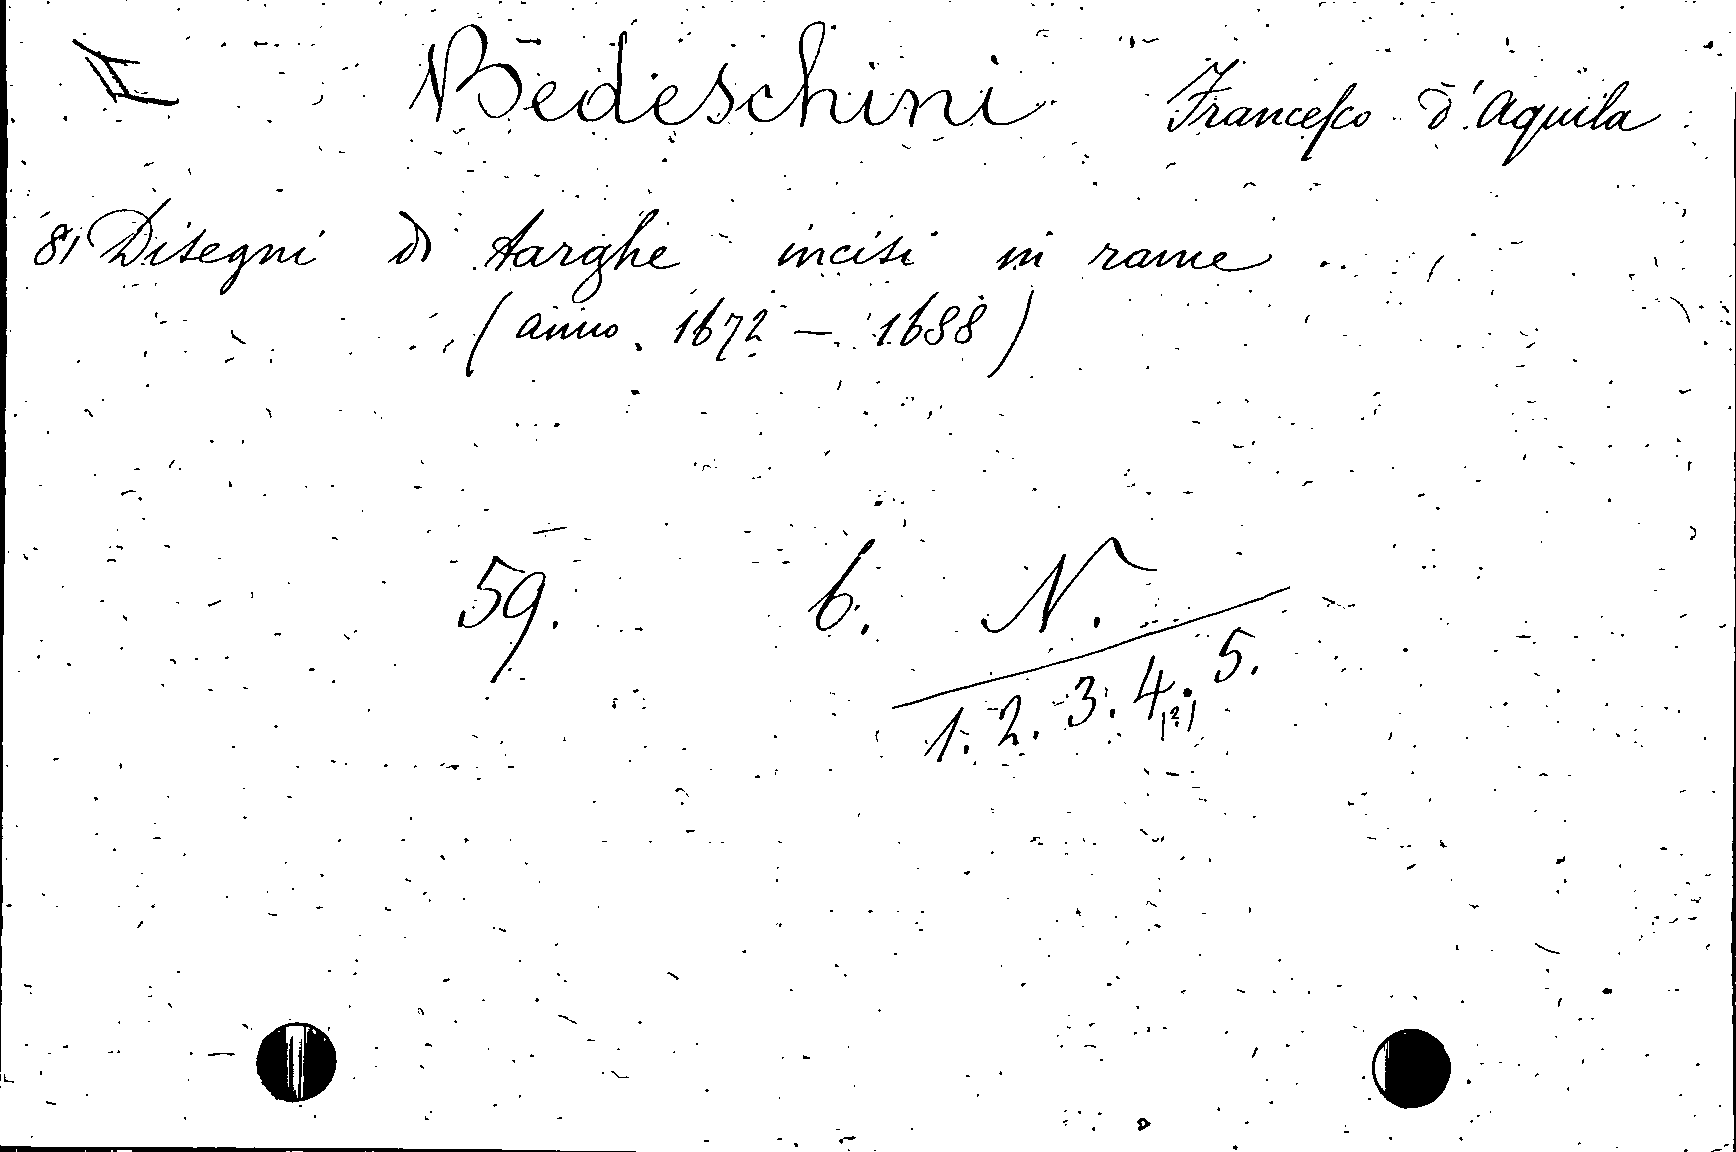 II Bedeschini Francesco d'Aquila
81 Disegni di targhe incisi in rame
(anno 1672 – 1688)
59. b. N.
1. 2. 3. 4. 5.
(2)